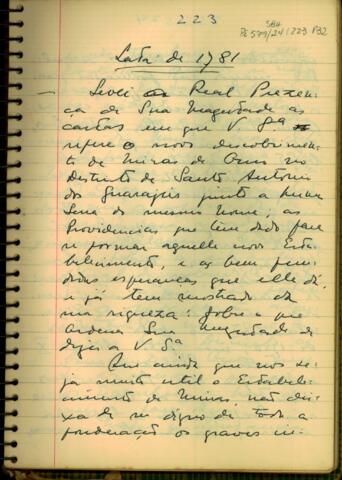 223
SBH
Pt 579/24 223 P32
Lata de 1781
— Levei a Real Prezen-
ça de Sua Magestade as
cartas em que V Sª se
refere o novo descobrimen-
to de Minas de Ouro no
Districto de Santo Antonio
dos Guarajús junto a huma
Serra do mesmo nome; as
Providencias que tem dado para
se formar aquelle novo Esta-
belecimento, e as bem fun-
dadas esperanças que elle dá,
e já tem mostrado da
sua riqueza: Sobre o que
ordena Sua Magestade di-
zer a V Sª
Que ainda que nos se-
ja muito util o Estabele-
cimento de Minas, não dei-
xa de ser digno de toda a
ponderação os graves in-